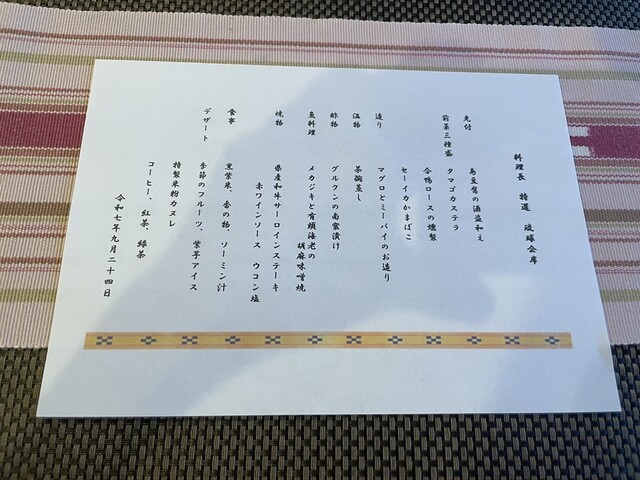 料理長 特選 琉球会席
先付 島豆腐の酒盗和え
前菜三種盛 タマゴカステラ
合鴨ロースの燻製
セーイカかまぼこ
造り マグロとミーバイのお造り
温物 茶碗蒸し
酢物 グルクンの南蛮漬け
魚料理 メカジキと有頭海老の
胡麻味噌焼
焼物 県産和牛サーロインステーキ
赤ワインソース ウコン塩
食事 黒紫米、香の物、ソーミン汁
デザート 季節のフルーツ、紫芋アイス
特製米粉カヌレ
コーヒー、紅茶、緑茶
令和七年九月二十四日